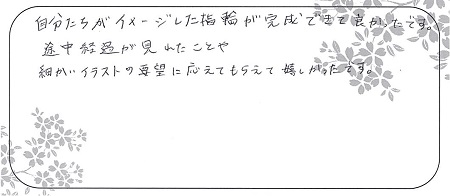 自分たちがイメージした指輪が完成できて良かったです。
途中経過が見れたことや
細かいイラストの要望に応えてもらえて嬉しかったです。